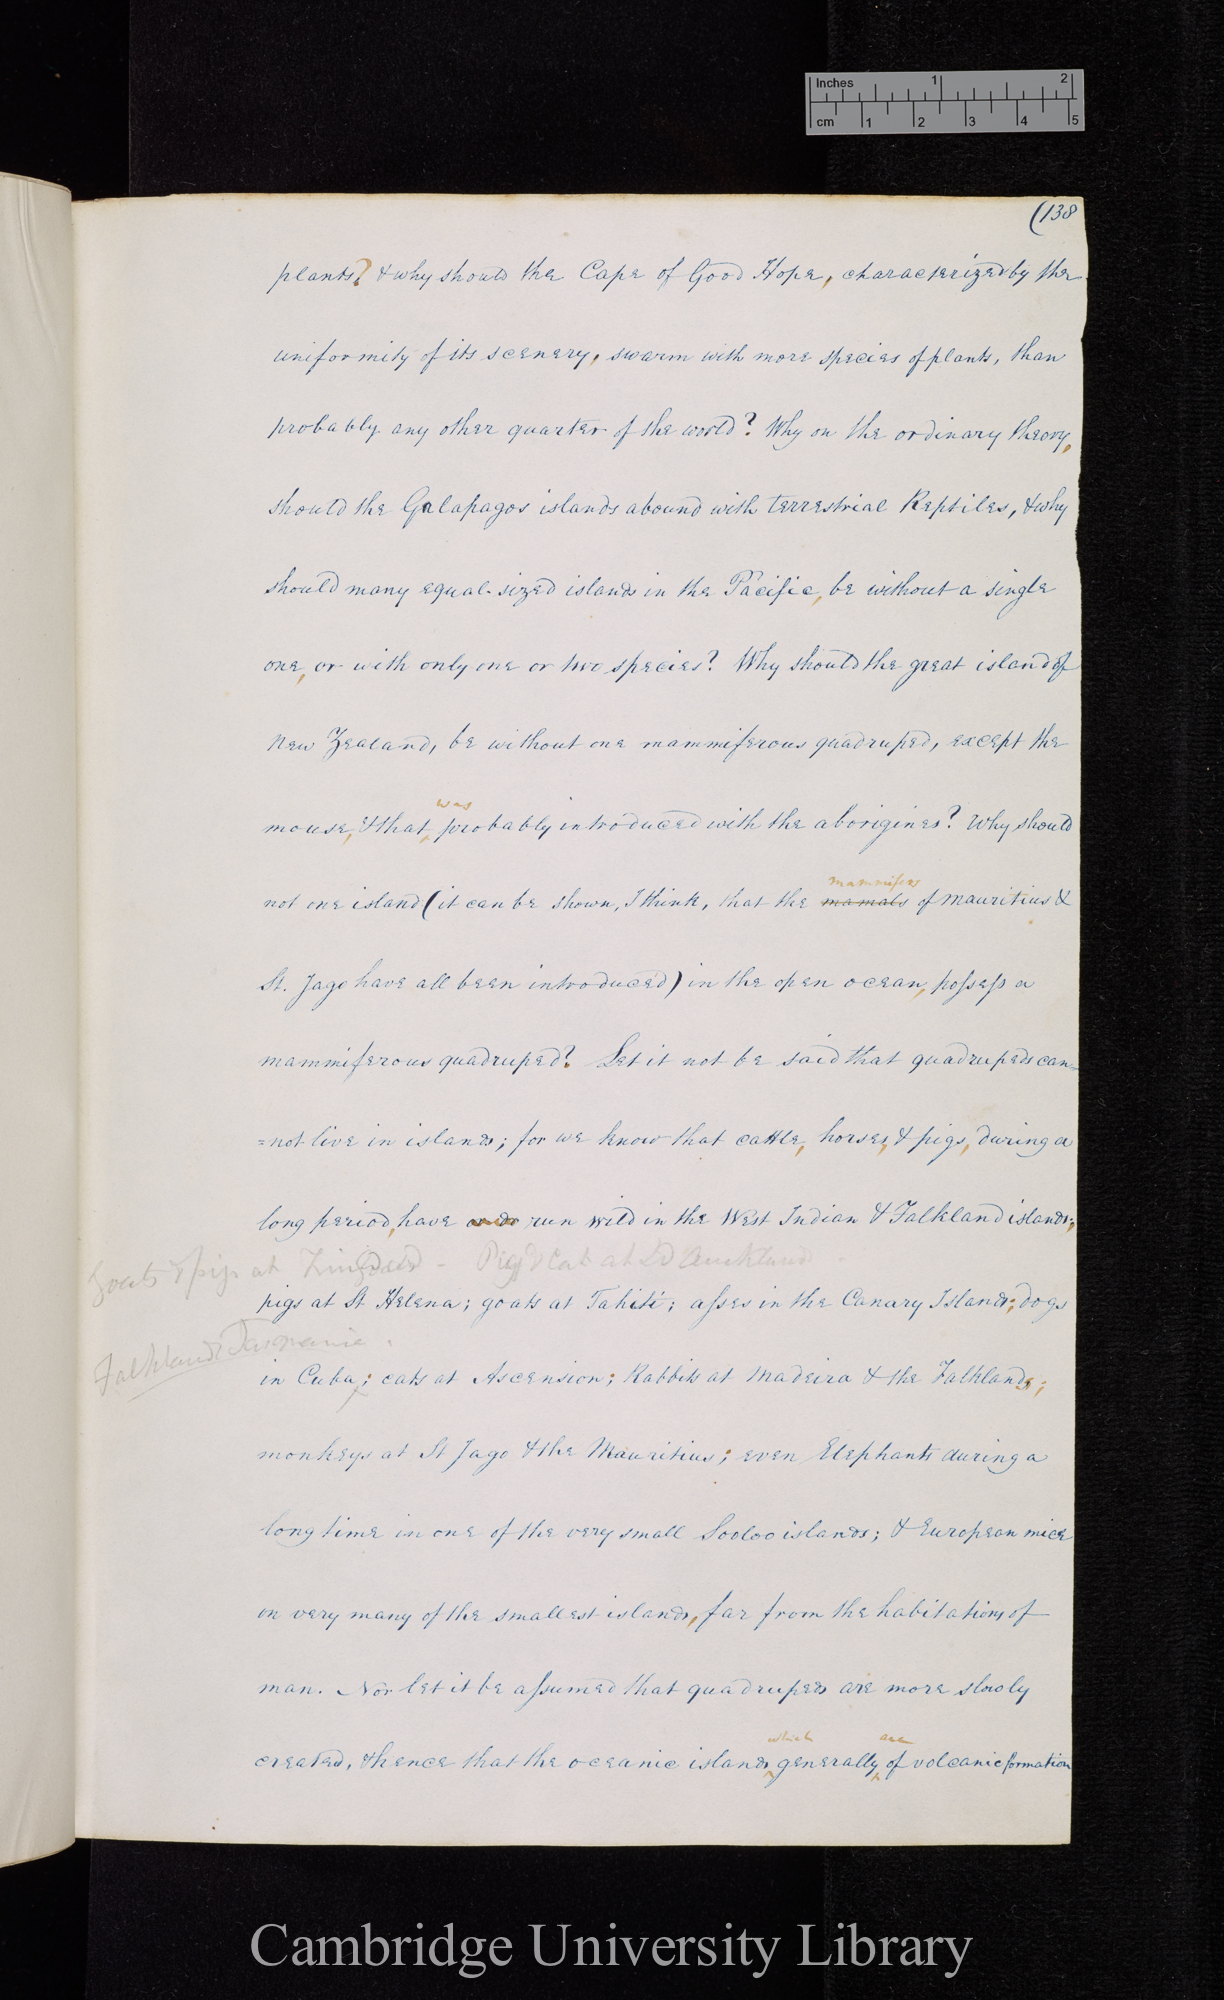 Inches 1 2
cm 1 2 3 4 5
(138
plants? & why should the Cape of Good Hope, characterized by the
uniformity of its scenery, swarm with more species of plants, than
probably any other quarter of the world? Why on the ordinary theory,
should the Galapagos islands abound with terrestrial Reptiles, & why
should many equal-sized islands in the Pacific, be without a single
one, or with only one or two species? Why should the great island of
New Zealand, be without one mammiferous quadruped, except the
was
mouse, & that, probably introduced with the aborigines? Why should
mammifers
not one island (it can be shown, I think, that the mamals of Mauritius &
St. Jago have all been introduced) in the open ocean, possess a
mammiferous quadruped? Let it not be said that quadrupeds can=
=not live in islands; for we know that cattle, horses, & pigs, during a
long period, have run wild in the West Indian & Falkland islands;
Goats & pigs at - Pigs & Cat at Ld Auckland
pigs at St Helena; goats at Tahiti; asses in the Canary Islands; dogs
Falklands Tasmania.
in Cuba; cats at Ascension; Rabbits at Madeira & the Falklands;
monkeys at St Jago & the Mauritius; even Elephants during a
long time in one of the very small Sooloo islands; & European mice
on very many of the smallest islands, far from the habitations of
man. Nor let it be assumed that quadrupeds are more slowly
which are
created, & hence that the oceanic islands, generally, of volcanic formation
Cambridge University Library